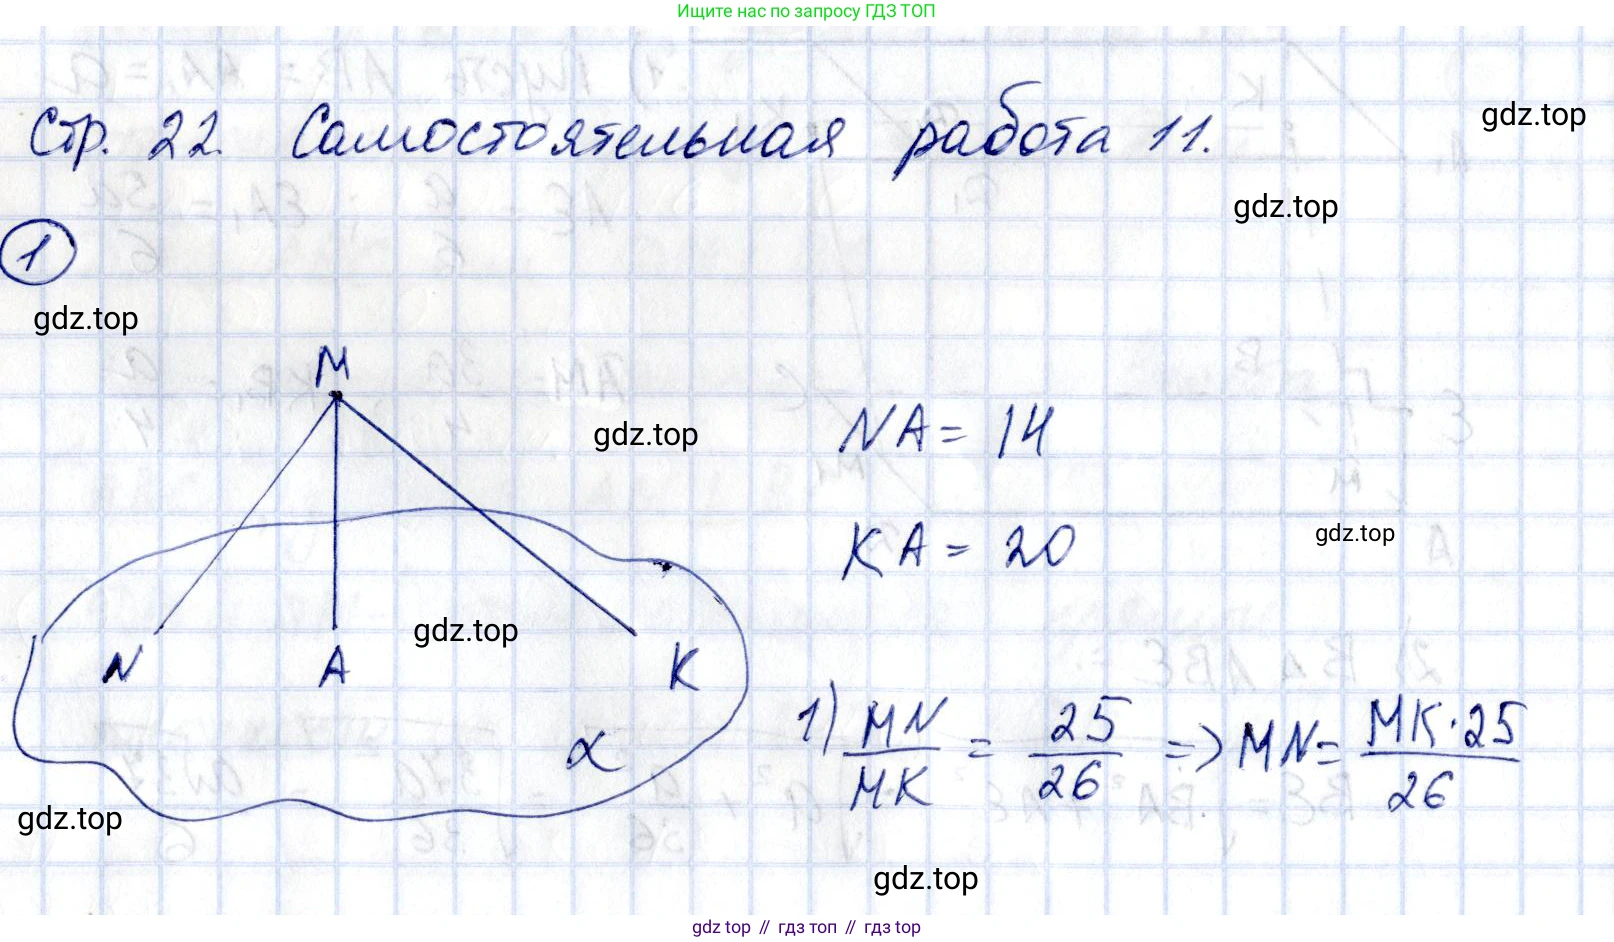 Ищите нас по запросу ГДЗ ТОП
Стр. 22. Самостоятельная работа 11.
gdz.top
gdz.top
1
gdz.top
M
gdz.top
NA = 14
KA = 20
gdz.top
gdz.top
N A K
α
1) MN/MK = 25/26 => MN = MK·25/26
gdz.top
gdz.top
gdz top // гдз топ // гдз top